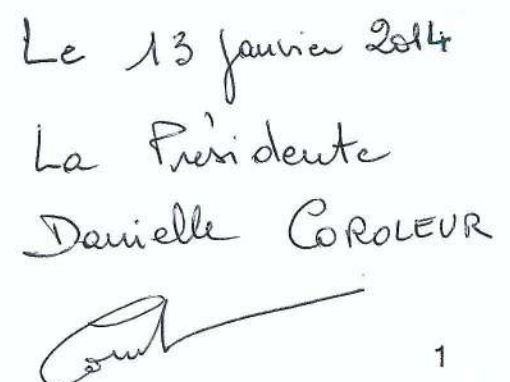 Le 13 Janvier 2014
La Présidente
Danielle COROLEUR
1